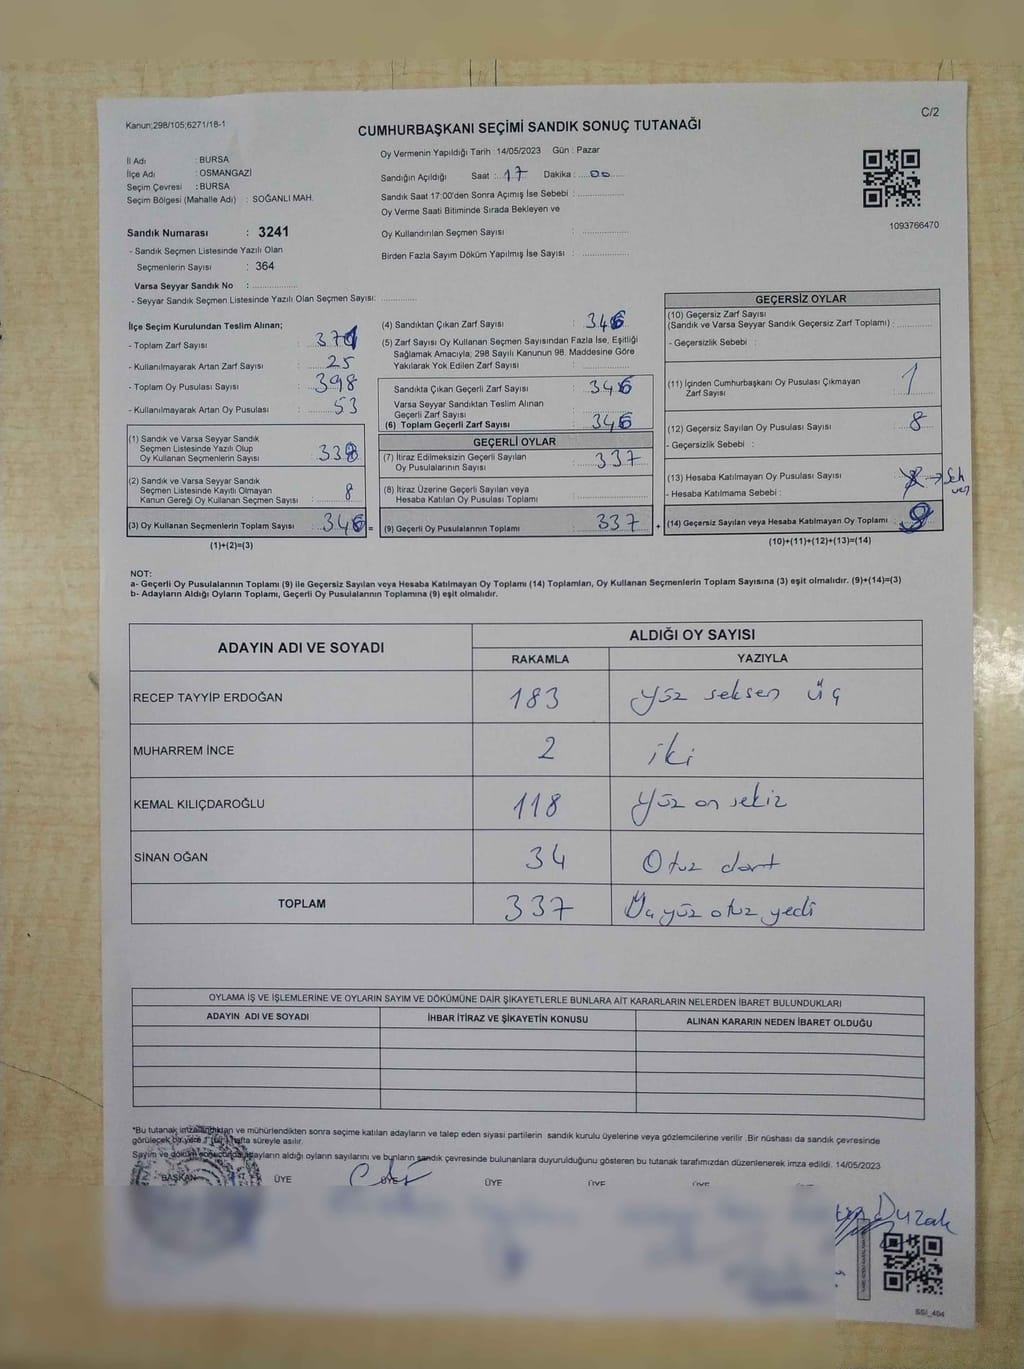 Kanun;298/105;6271/18-1
C/2
CUMHURBAŞKANI SEÇİMİ SANDIK SONUÇ TUTANAĞI
İl Adı : BURSA
İlçe Adı : OSMANGAZİ
Seçim Çevresi : BURSA
Seçim Bölgesi (Mahalle Adı) : SOĞANLI MAH.
Oy Vermenin Yapıldığı Tarih : 14/05/2023 Gün : Pazar
Sandığın Açıldığı Saat : 17 Dakika : 00
Sandık Saat 17:00'den Sonra Açımış İse Sebebi :
Oy Verme Saati Bitiminde Sırada Bekleyen ve
Oy Kullandırılan Seçmen Sayısı :
Birden Fazla Sayım Döküm Yapılmış İse Sayısı :
1093766470
Sandık Numarası : 3241
- Sandık Seçmen Listesinde Yazılı Olan
Seçmenlerin Sayısı : 364
Varsa Seyyar Sandık No :
- Seyyar Sandık Seçmen Listesinde Yazılı Olan Seçmen Sayısı:
İlçe Seçim Kurulundan Teslim Alınan;
- Toplam Zarf Sayısı : 371
- Kullanılmayarak Artan Zarf Sayısı : 25
- Toplam Oy Pusulası Sayısı : 398
- Kullanılmayarak Artan Oy Pusulası : 53
(1) Sandık ve Varsa Seyyar Sandık
Seçmen Listesinde Yazılı Olup
Oy Kullanan Seçmenlerin Sayısı : 338
(2) Sandık ve Varsa Seyyar Sandık
Seçmen Listesinde Kayıtlı Olmayan
Kanun Gereği Oy Kullanan Seçmen Sayısı : 8
(3) Oy Kullanan Seçmenlerin Toplam Sayısı : 346 =
(1)+(2)=(3)
(4) Sandıktan Çıkan Zarf Sayısı : 346
(5) Zarf Sayısı Oy Kullanan Seçmen Sayısından Fazla İse, Eşitliği
Sağlamak Amacıyla; 298 Sayılı Kanunun 98. Maddesine Göre
Yakılarak Yok Edilen Zarf Sayısı :
Sandıkta Çıkan Geçerli Zarf Sayısı : 346
Varsa Seyyar Sandıktan Teslim Alınan
Geçerli Zarf Sayısı :
(6) Toplam Geçerli Zarf Sayısı : 346
GEÇERLİ OYLAR
(7) İtiraz Edilmeksizin Geçerli Sayılan
Oy Pusulalarının Sayısı : 337
(8) İtiraz Üzerine Geçerli Sayılan veya
Hesaba Katılan Oy Pusulası Toplamı :
(9) Geçerli Oy Pusulalarının Toplamı : 337 +
GEÇERSİZ OYLAR
(10) Geçersiz Zarf Sayısı
(Sandık ve Varsa Seyyar Sandık Geçersiz Zarf Toplamı) :
- Geçersizlik Sebebi :
(11) İçinden Cumhurbaşkanı Oy Pusulası Çıkmayan
Zarf Sayısı : 1
(12) Geçersiz Sayılan Oy Pusulası Sayısı : 8
- Geçersizlik Sebebi :
(13) Hesaba Katılmayan Oy Pusulası Sayısı :
- Hesaba Katılmama Sebebi :
(14) Geçersiz Sayılan veya Hesaba Katılmayan Oy Toplamı : 9
(10)+(11)+(12)+(13)=(14)
NOT:
a- Geçerli Oy Pusulalarının Toplamı (9) ile Geçersiz Sayılan veya Hesaba Katılmayan Oy Toplamı (14) Toplamları, Oy Kullanan Seçmenlerin Toplam Sayısına (3) eşit olmalıdır. (9)+(14)=(3)
b- Adayların Aldığı Oyların Toplamı, Geçerli Oy Pusulalarının Toplamına (9) eşit olmalıdır.
ADAYIN ADI VE SOYADI
ALDIĞI OY SAYISI
RAKAMLA YAZIYLA
RECEP TAYYİP ERDOĞAN 183 Yüz seksen üç
MUHARREM İNCE 2 iki
KEMAL KILIÇDAROĞLU 118 Yüz on sekiz
SİNAN OĞAN 34 Otuz dört
TOPLAM 337 Üç yüz otuz yedi
OYLAMA İŞ VE İŞLEMLERİNE VE OYLARIN SAYIM VE DÖKÜMÜNE DAİR ŞİKAYETLERLE BUNLARA AİT KARARLARIN NELERDEN İBARET BULUNDUKLARI
ADAYIN ADI VE SOYADI
İHBAR İTİRAZ VE ŞİKAYETİN KONUSU
ALINAN KARARIN NEDEN İBARET OLDUĞU
*Bu tutanak imzalandıktan ve mühürlendikten sonra seçime katılan adayların ve talep eden siyasi partilerin sandık kurulu üyelerine veya gözlemcilerine verilir .Bir nüshası da sandık çevresinde
görülecek bir yere 1 (bir) hafta süreyle asılır.
Sayım ve döküm sonucunda adayların aldığı oyların sayılarını ve bunların sandık çevresinde bulunanlara duyurulduğunu gösteren bu tutanak tarafımızdan düzenlenerek imza edildi. 14/05/2023
BAŞKAN ÜYE ÜYE ÜYE ÜYE ÜYE
Duzak
SSİ_404